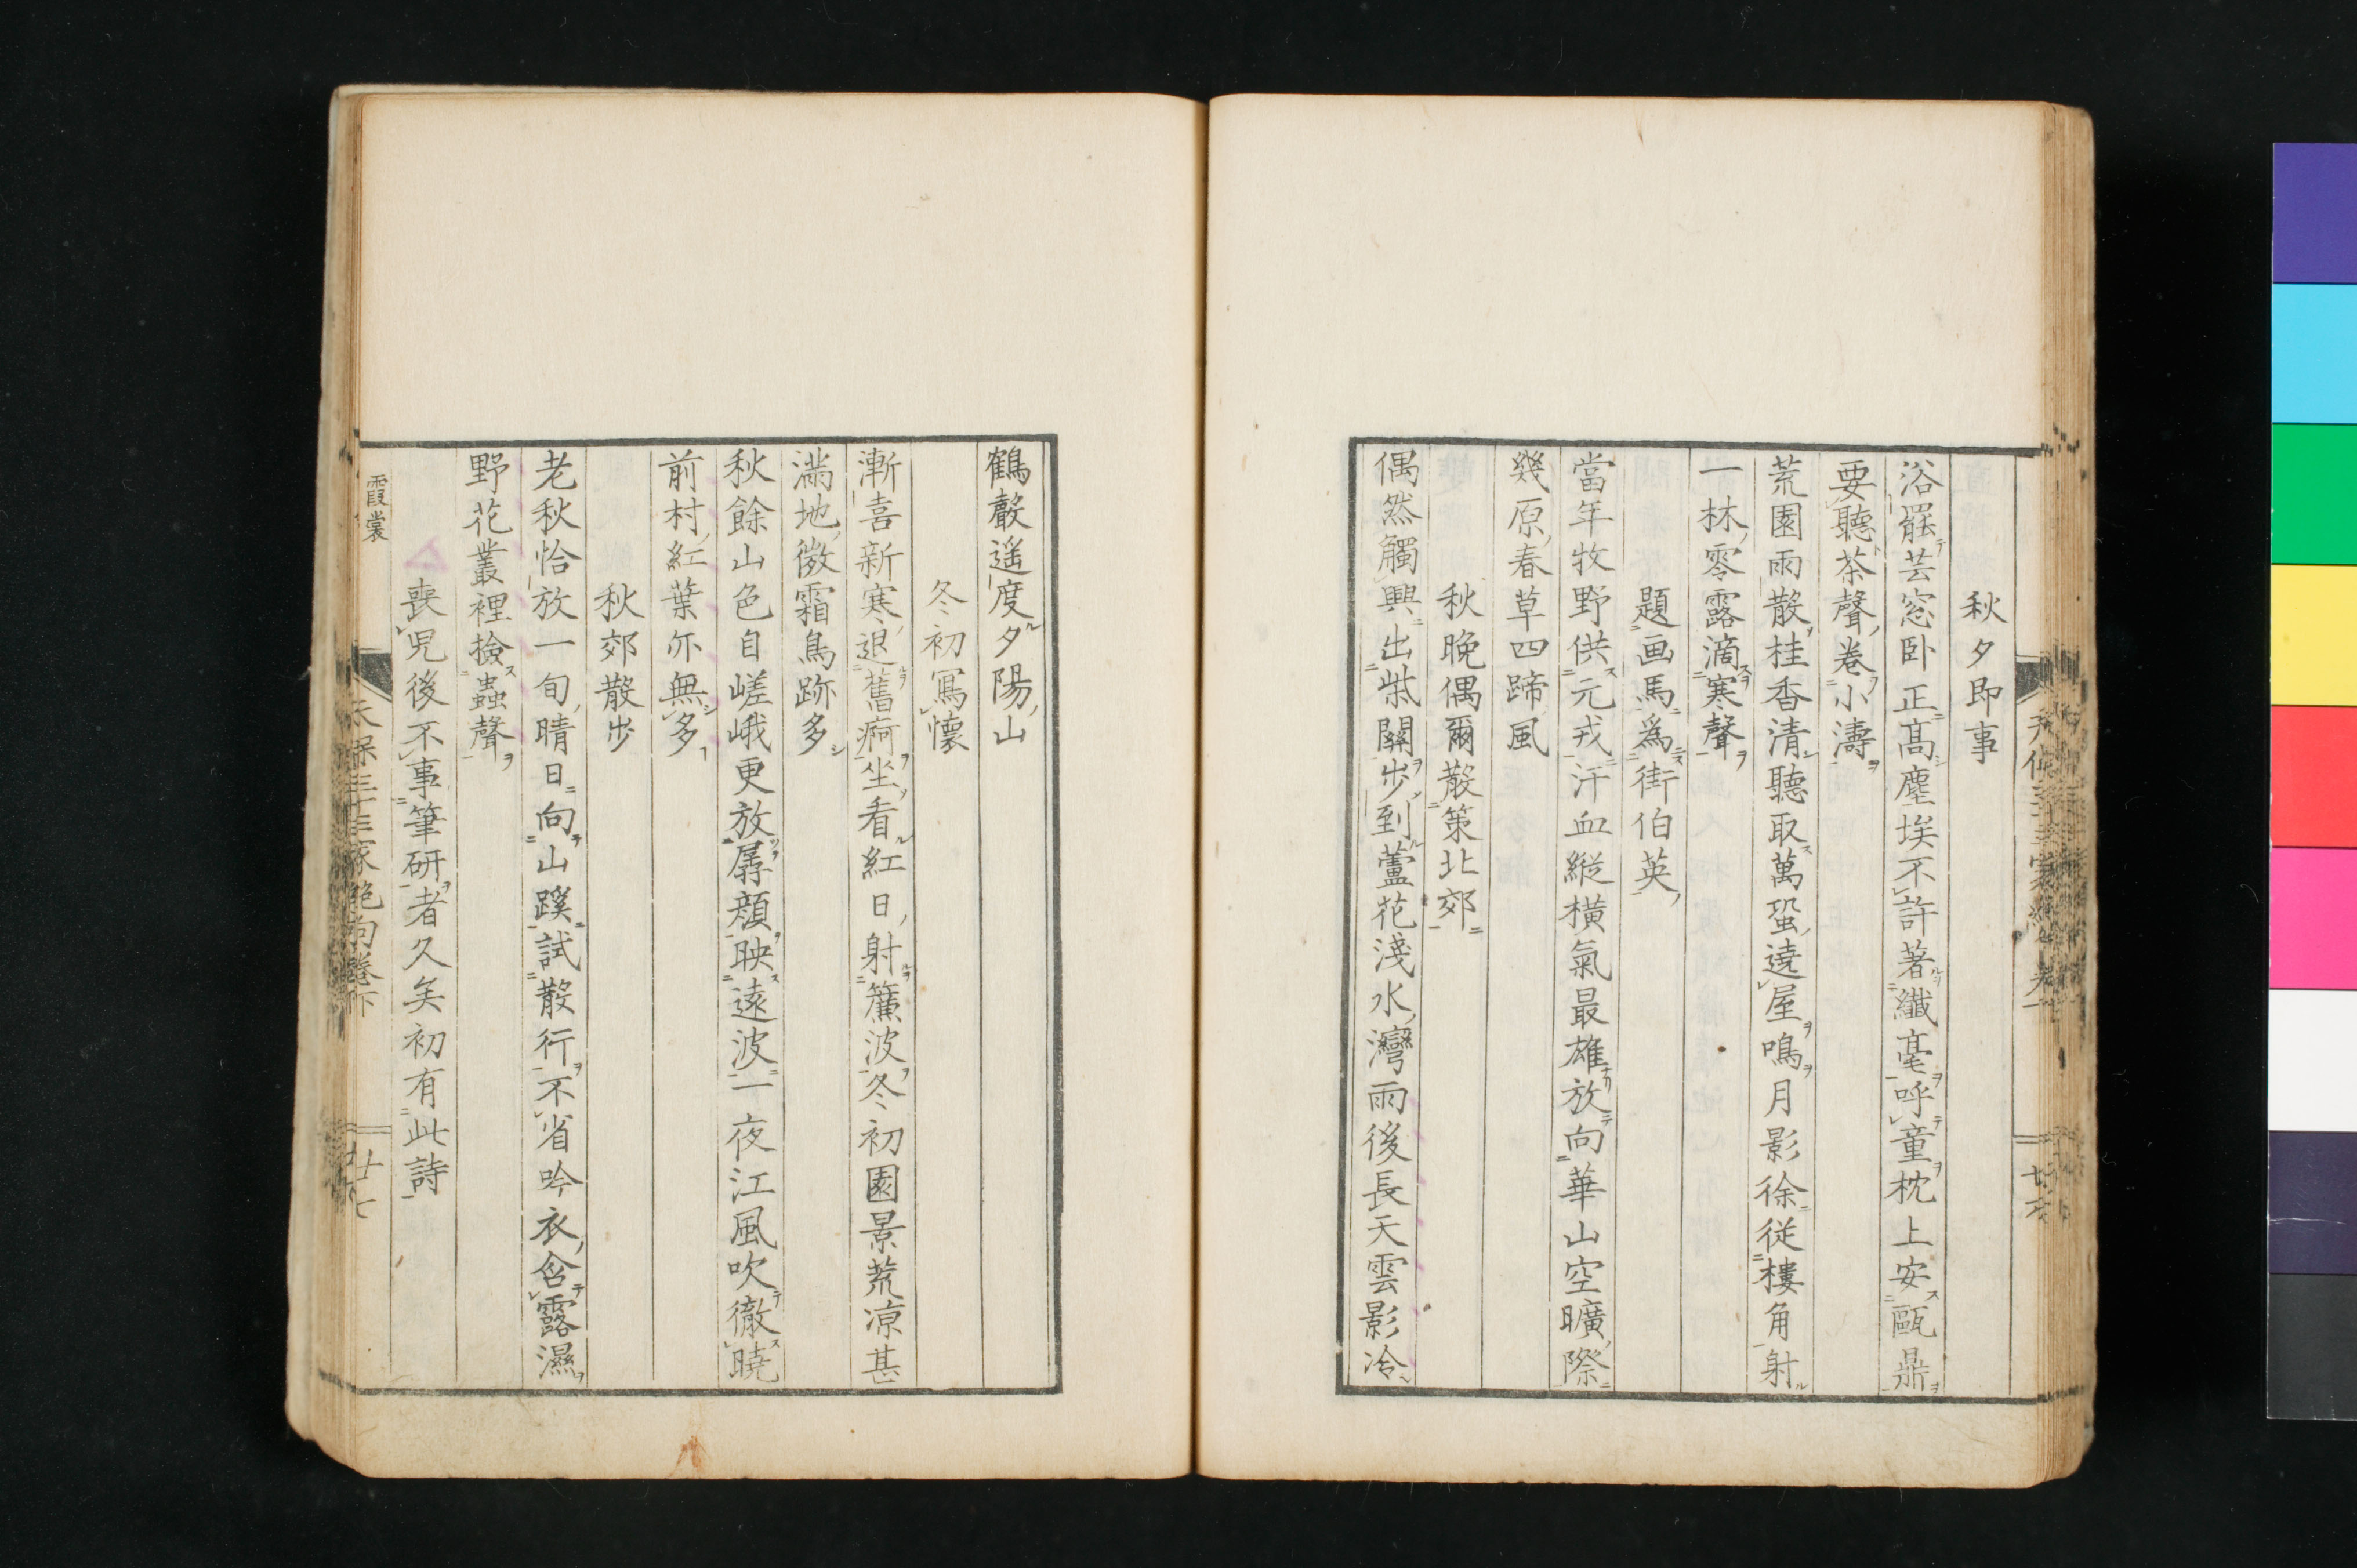 秋夕即事
浴罷芸窓卧正高塵埃不許著纖毫呼童枕上安甌鼎
要聽茶聲卷小濤
荒園雨散桂香清聽取萬蛩遶屋鳴月影徐從樓角射
一林零露滴寒聲
題画馬爲街伯英
當年牧野供元戎汗血縱橫氣最雄放向華山空曠際
幾原春草四蹄風
秋晚偶爾散策北郊
偶然觸興出柴關步到蘆花淺水灣雨後長天雲影冷
鶴聲遥度夕陽山
冬初寫懷
漸喜新寒退舊痾坐看紅日射簾波冬初園景荒凉甚
滿地微霜鳥跡多
秋餘山色自嵯峨更放孱顏映遠波一夜江風吹徹曉
前村紅葉亦無多
秋郊散步
老秋恰放一旬晴日向山蹊試散行不省吟衣含露濕
野花叢裡撿蟲聲
喪兒後不事筆研者久矣初有此詩
霞裳
天保三十三家絶句卷下
廿七